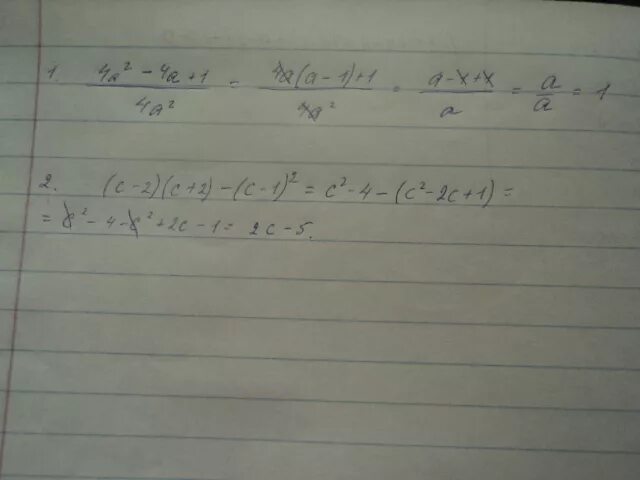 1. (4a² - 4a + 1)/(4a²) = (4a(a - 1) + 1)/(4a²) = (a - 1 + 1)/a = a/a = 1
2. (c - 2)(c + 2) - (c - 1)² = c² - 4 - (c² - 2c + 1) =
= c² - 4 - c² + 2c - 1 = 2c - 5.